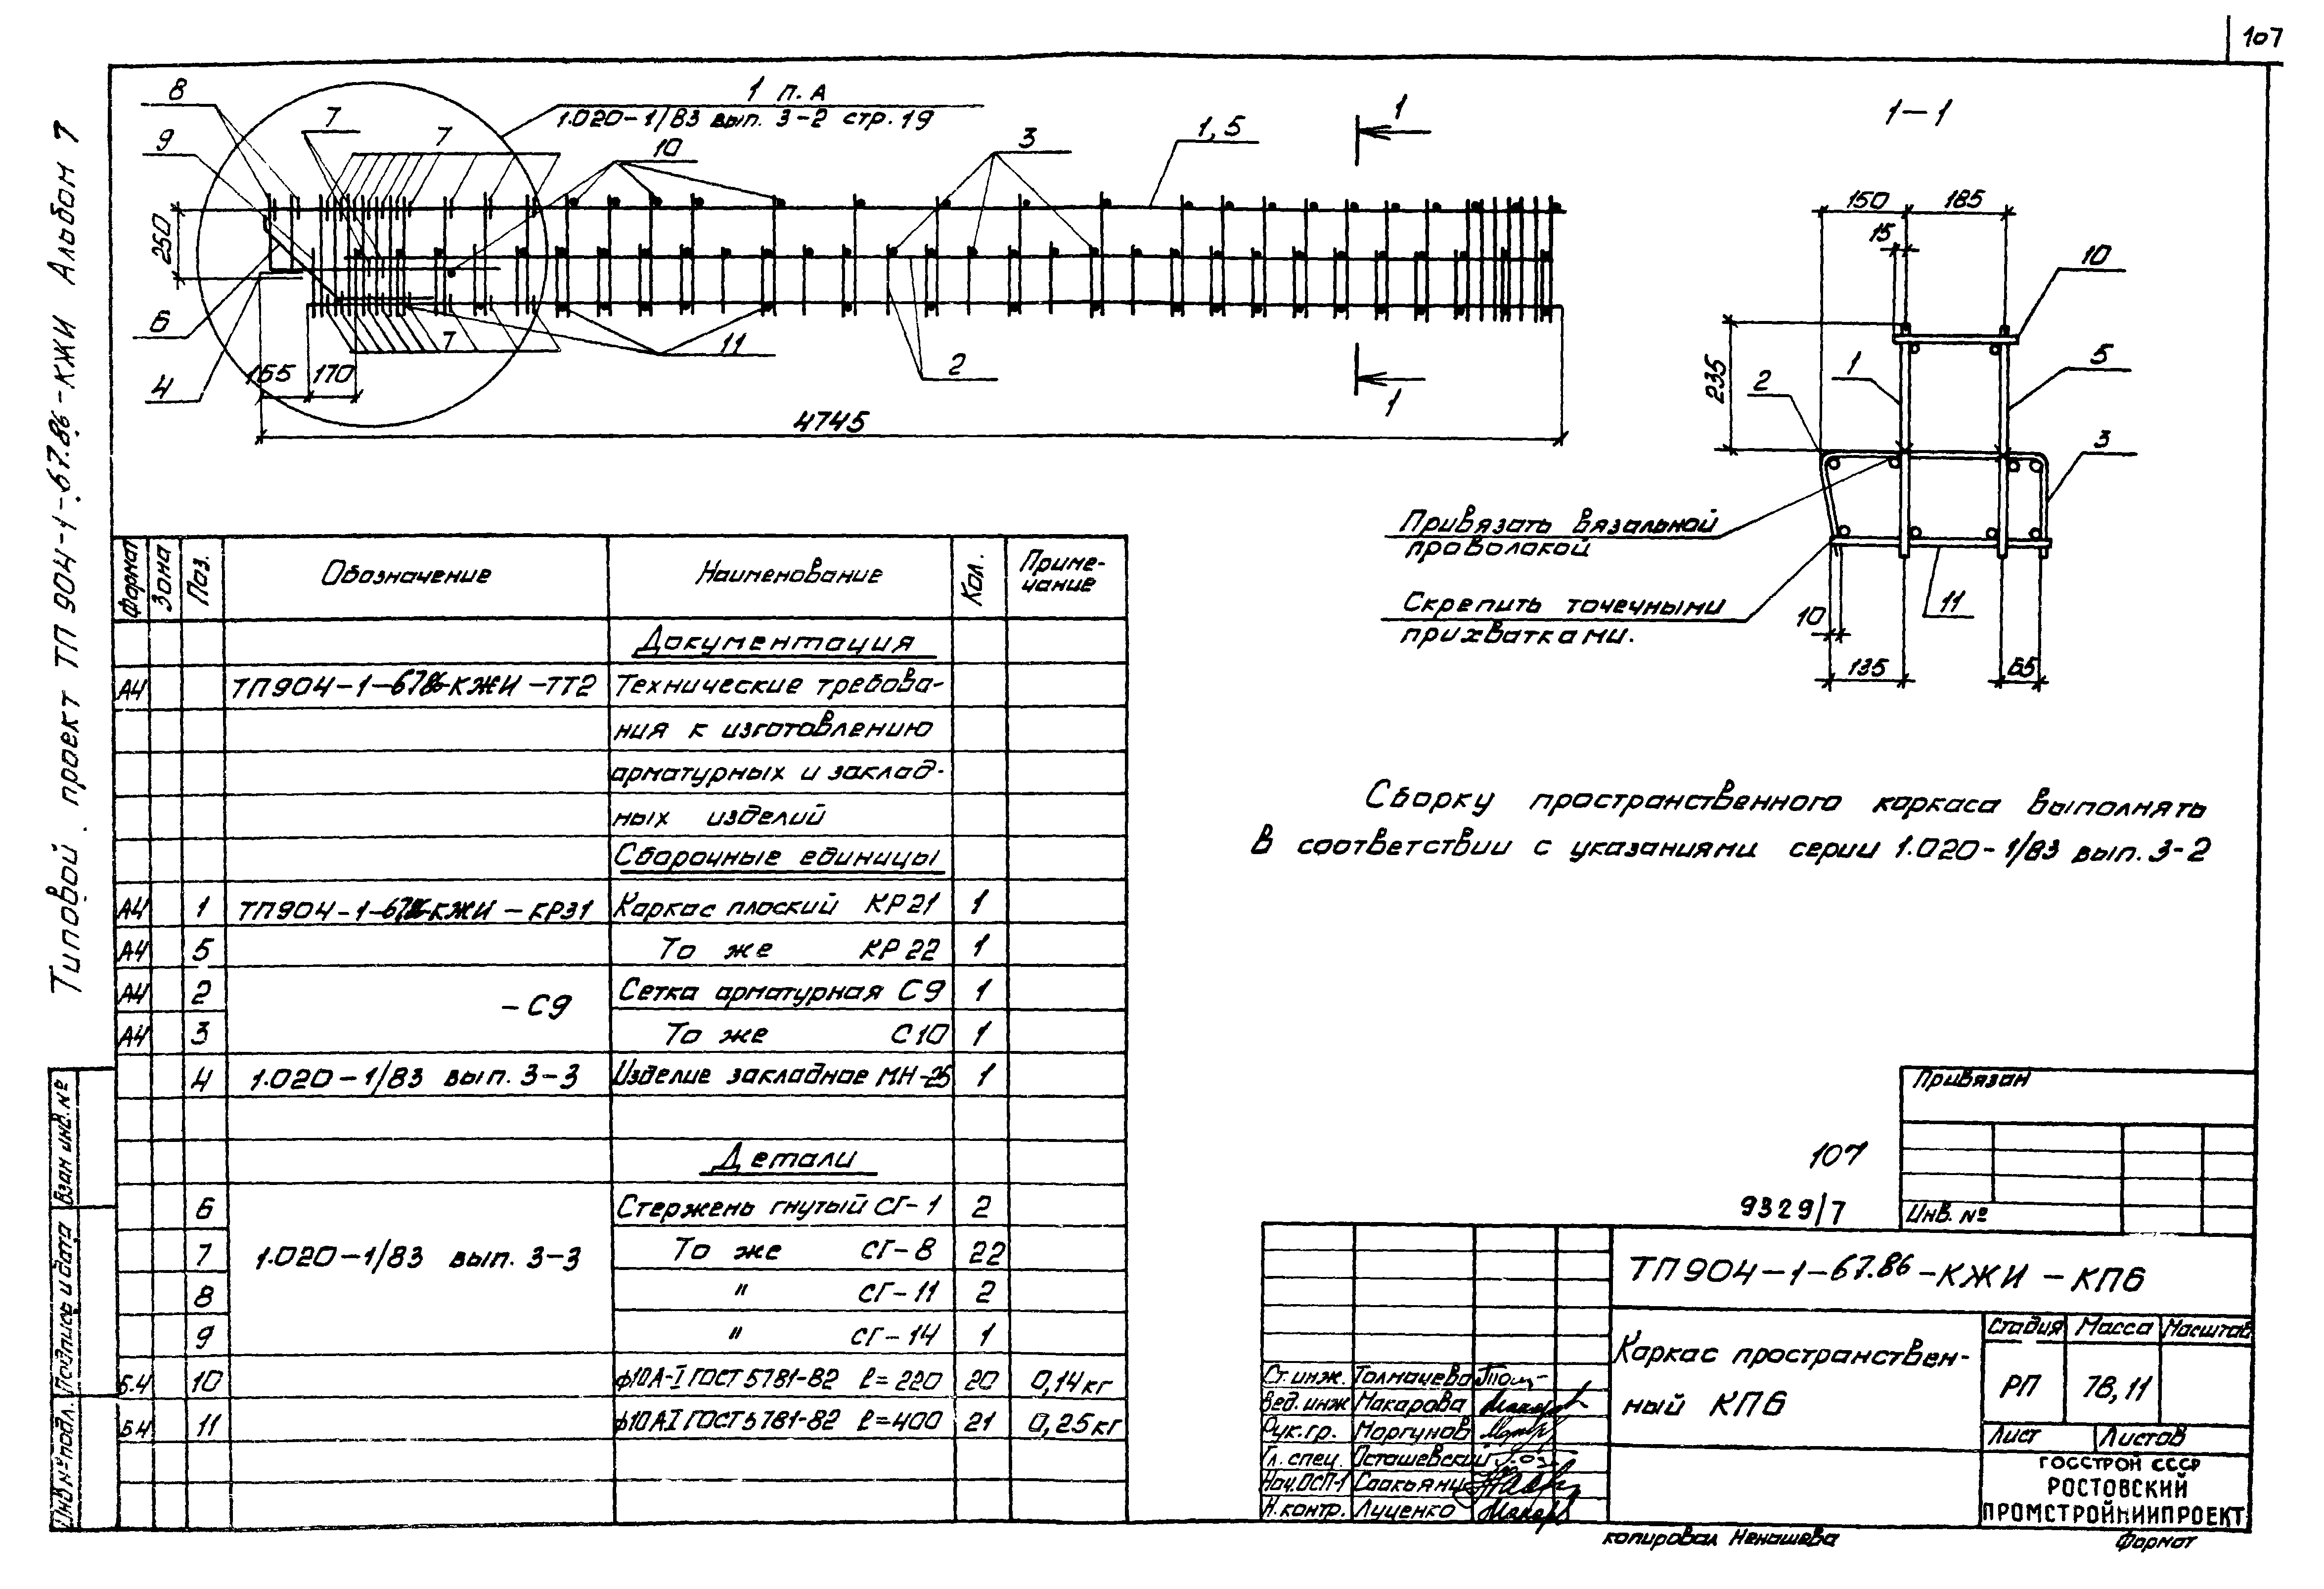 107
Типовой проект ТП 904-1-67.86-КЖИ Альбом 7
1 п. А
1.020-1/83 вып. 3-2 стр. 19
8
7
7
9
10
3
1,5
1
1
250
6
4
7
11
2
155
170
4745
1-1
150
185
15
10
235
2
1
5
3
Привязать вязальной
проволокой
Скрепить точечными
прихватками.
10
11
135
55
Сборку пространственного каркаса выполнять
в соответствии с указаниями серии 1.020-1/83 вып. 3-2
Формат Зона Поз. Обозначение Наименование Кол. Приме-
чание
Документация
А4 ТП904-1-67.86-КЖИ-ТТ2 Технические требова-
ния к изготовлению
арматурных и заклад-
ных изделий
Сборочные единицы
А4 1 ТП904-1-67.86-КЖИ-КР31 Каркас плоский КР21 1
А4 5 То же КР22 1
А4 2 -С9 Сетка арматурная С9 1
А4 3 То же С10 1
4 1.020-1/83 вып. 3-3 Изделие закладное МН-25 1
Детали
6 Стержень гнутый СГ-1 2
7 1.020-1/83 вып. 3-3 То же СГ-8 22
8 " СГ-11 2
9 " СГ-14 1
Б.4 10 ф10А-I ГОСТ 5781-82 ℓ=220 20 0,14кг
Б4 11 ф10АI ГОСТ 5781-82 ℓ=400 21 0,25кг
Взам инв. №
Подпись и дата
Инв № подл.
107
9329/7
Привязан
Инв. №
ТП904-1-67.86-КЖИ-КП6
Каркас пространствен-
ный КП6
Стадия Масса Масштаб
РП 78,11
Лист Листов
Ст. инж. Толмачева
Вед. инж Макарова
Рук. гр. Моргунов
Гл. спец. Осташевский
Нач. ОСП-1 Саакьянц
Н. контр. Луценко
ГОССТРОЙ СССР
РОСТОВСКИЙ
ПРОМСТРОЙНИИПРОЕКТ
копировал Ненашева
Формат